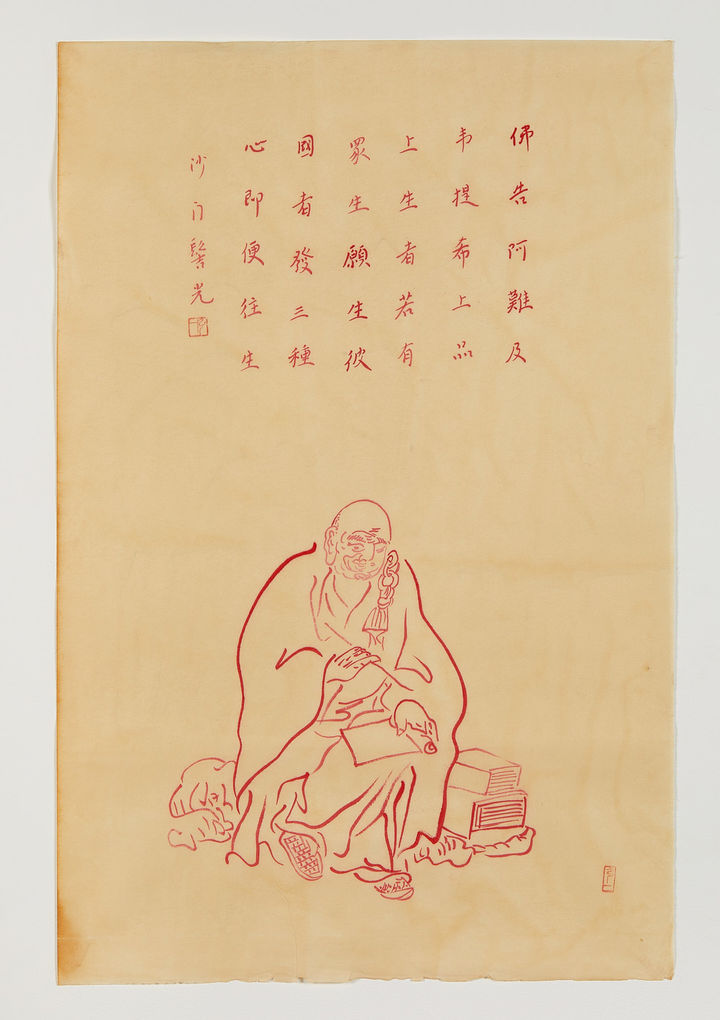 佛告阿難及
韦提希上品
上生者若有
眾生願生彼
國者發三種
心即便往生
沙门光